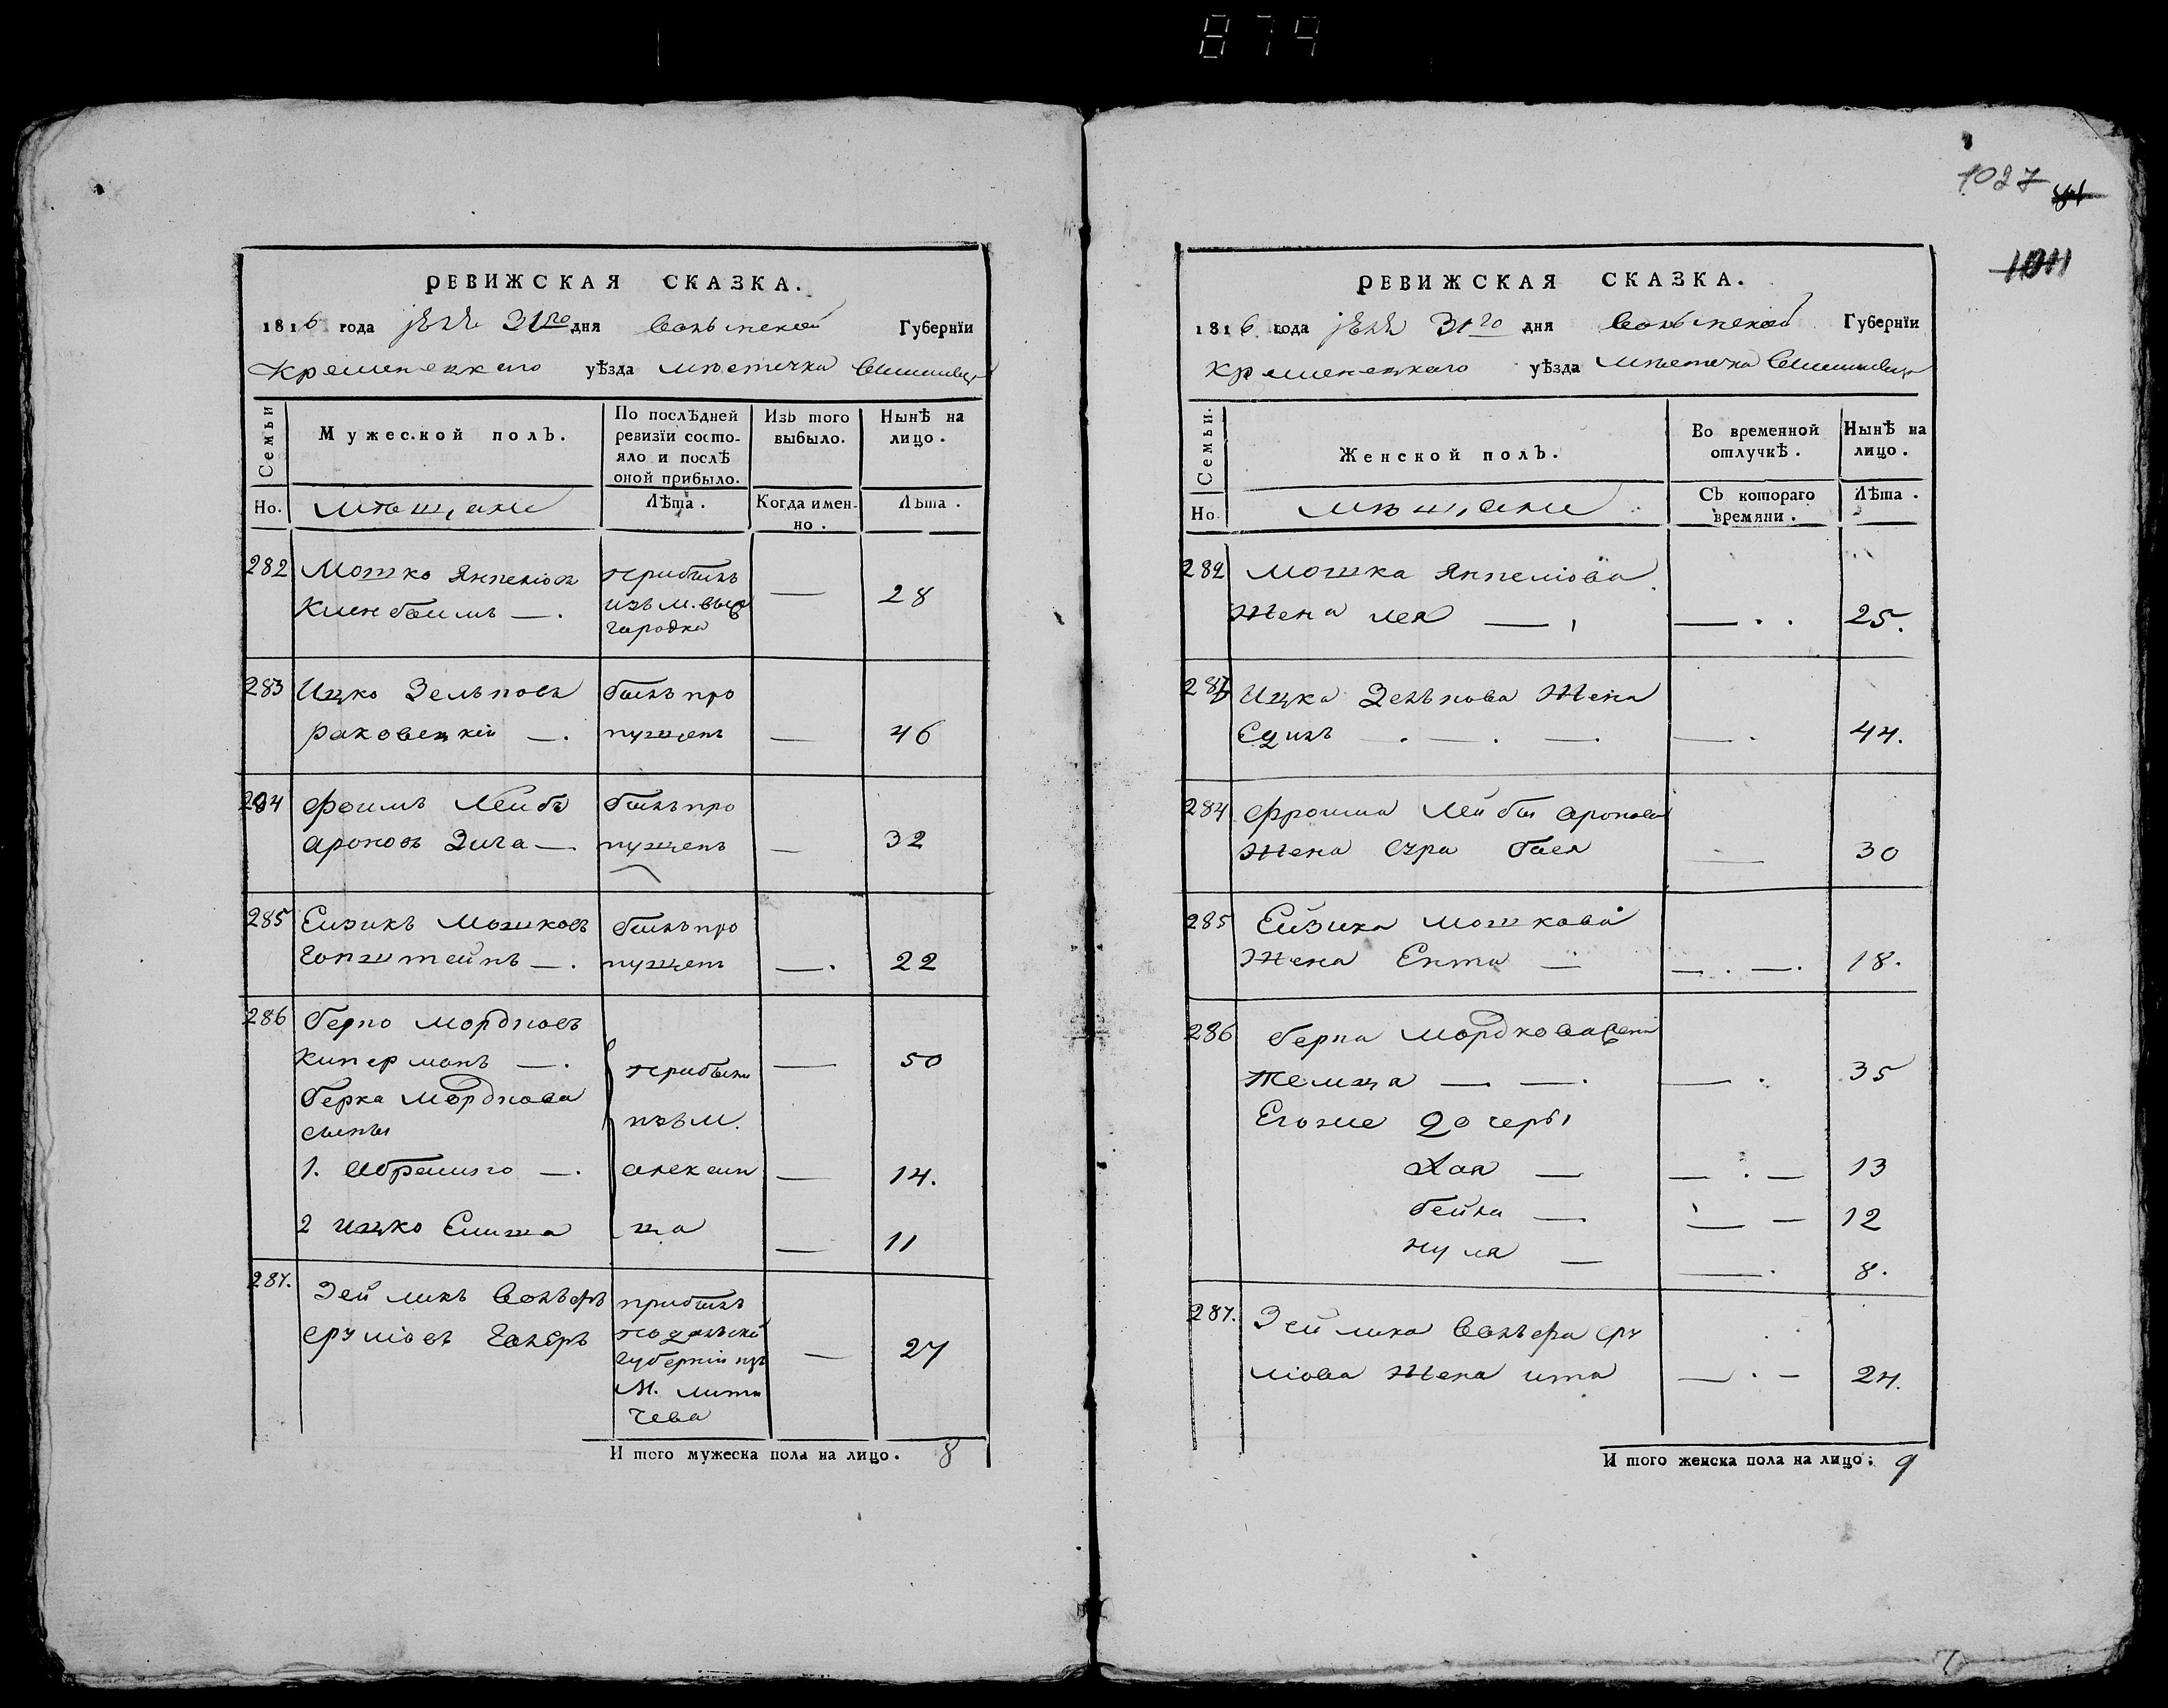 879
1027
РЕВИЖСКАЯ СКАЗКА.
1816 года 31го дня Волынской Губернїи
Кременецкаго уѣзда мѣстечка
Семьи
Но.
Мужеской полъ.
мѣщане
По послѣдней ревизїи состо-
яло и послѣ
оной прибыло.
Лѣта.
Изъ того
выбыло.
Когда имен-
но.
Нынѣ на
лицо.
Лѣта.
282 Мошко Янкеліовъ прибылъ
изъ м. — 28
городка
283 Ицко Зельковъ былъ про
раковецкій —. пущенъ — 46
284 Фроимъ Лейба былъ про
ароновъ Зига — пущенъ — 32
285 Ейзикъ Мошковъ былъ про
Гопштейнъ —. пущенъ —. 22
286 Берко Мордковъ
Киперманъ —. прибыли — 50
Берка Мордкова
сыны изъ м.
1. Абрамко —. алексин — 14.
2 ицко Елиша ца — 11
287. Зейликъ Вольфъ прибылъ
Сруліовъ подольской — 27
Губерніи изъ
м. лити
чева
И того мужеска пола на лицо. 8
РЕВИЖСКАЯ СКАЗКА.
1816 года 31го дня Волынской Губернїи
Кременецкаго уѣзда мѣстечка
Семьи.
Но.
Женской полъ.
мѣщане
Во временной
отлучкѣ.
Съ котораго
времяни.
Нынѣ на
лицо.
Лѣта.
282 Мошка Янкеліова
Жена лея — 25.
283 Ицка Зелькова Жена
Едиль — 44.
284 Фроима Лейбы аронова
Жена Сура бася — 30
285 Ейзика мошкова
Жена Ента — 18.
286 берка Мордкова жена
Темца — 35
Егоже дочери
Хая — 13
бейла — 12
8.
287. Зейлика Вольфа Сру
ліова Жена ита — 24.
И того женска пола на лицо: 9